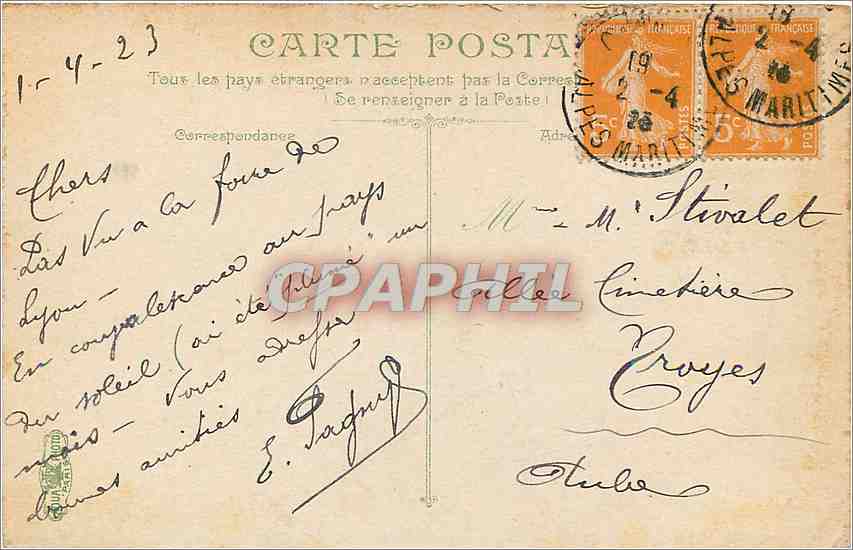 1-4-23
CARTE POSTA
Tous les pays étrangers n'acceptent pas la Corres
(Se renseigner à la Poste)
Correspondance
Adre
Chers
Pas vu a la foire de
Lyon -
En convalescence au pays
du soleil (ai été "plumé" un
mois - Vous adresse
bonnes amitiés
E.
Mme & Mr Stivalet
allée Cimetière
Troyes
Aube
RÉPUBLIQUE FRANÇAISE
5c
POSTES
19
2-4
ALPES MARITIMES
19
2-4
ALPES MARITIMES
CPAPHIL
PARIS